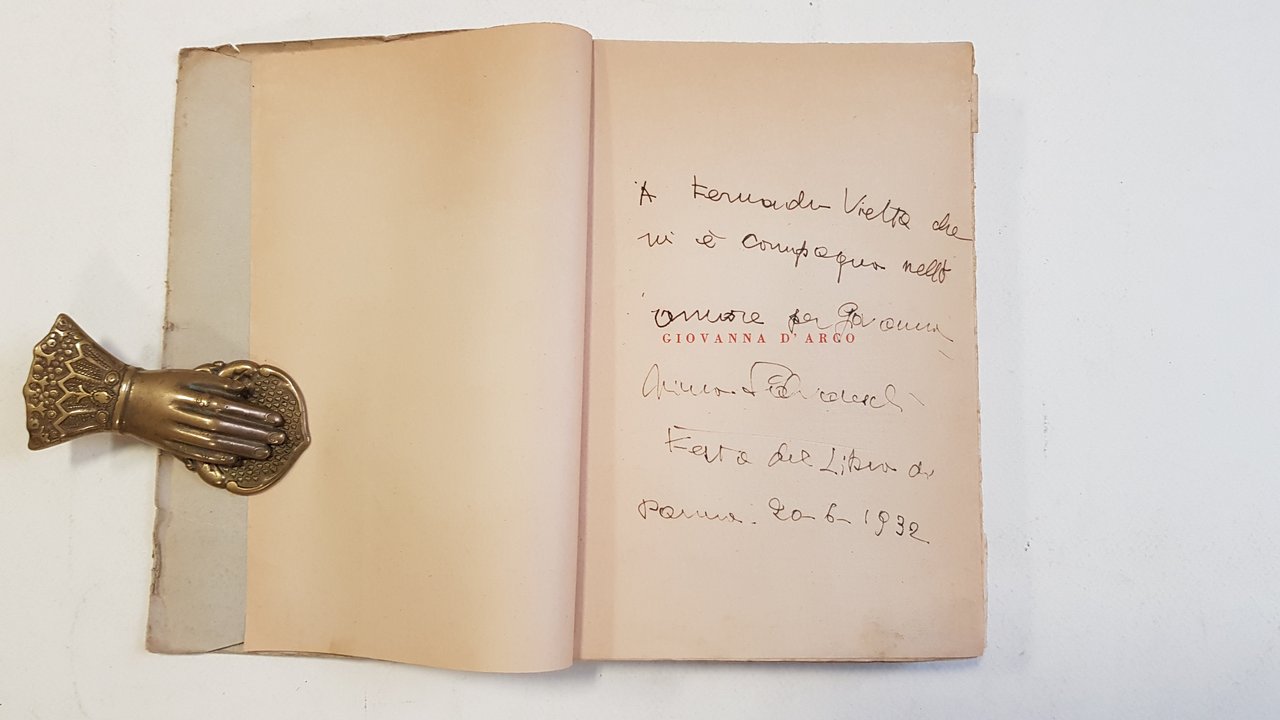 A Fernando Vietta che
mi è compagno nello
amore per Giovanna
GIOVANNA D'ARCO
Festa del Libro di
Parma. 20-6-1932